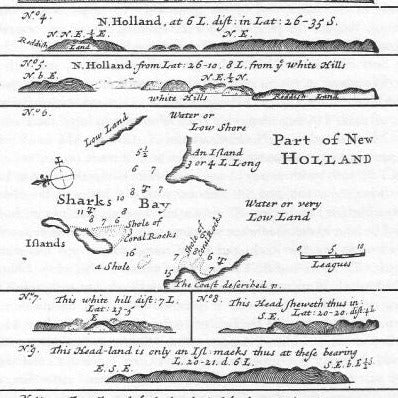 N.º 4. N. Holland, at 6 L. dist: in Lat: 26-35 S.
N. N. E. ½ E. N. E.
Reddish Land
N.º 5. N. Holland, from Lat: 26-10. 8 L. from yᵉ White Hills
N b E. N. E. ½ N.
White Hills Reddish Land
N.º 6.
Low Land
Water or
Low Shore
An Island
3 or 4 L. Long
Part of New
HOLLAND
5½
6 7
8 7
Sharks Bay
10
11 8
8 7 6
Water or very
Low Land
Shole of
Coral Rocks
Shole of
Coral Rocks
Islands
16
a Shole
7
6
7
15
5 10
Leagues
The Coast described p.
N.º 7. This white hill dist: 7 L.
Lat: 23-5
E
N.º 8. This Head sheweth thus in
S. E. Lat: 20-20. dist: 4 L
N.º 9. This Head-land is only an Isl: maeks thus at these bearing
E. S. E. L. 20-21. d. 6 L. S. E. b E ½ S.